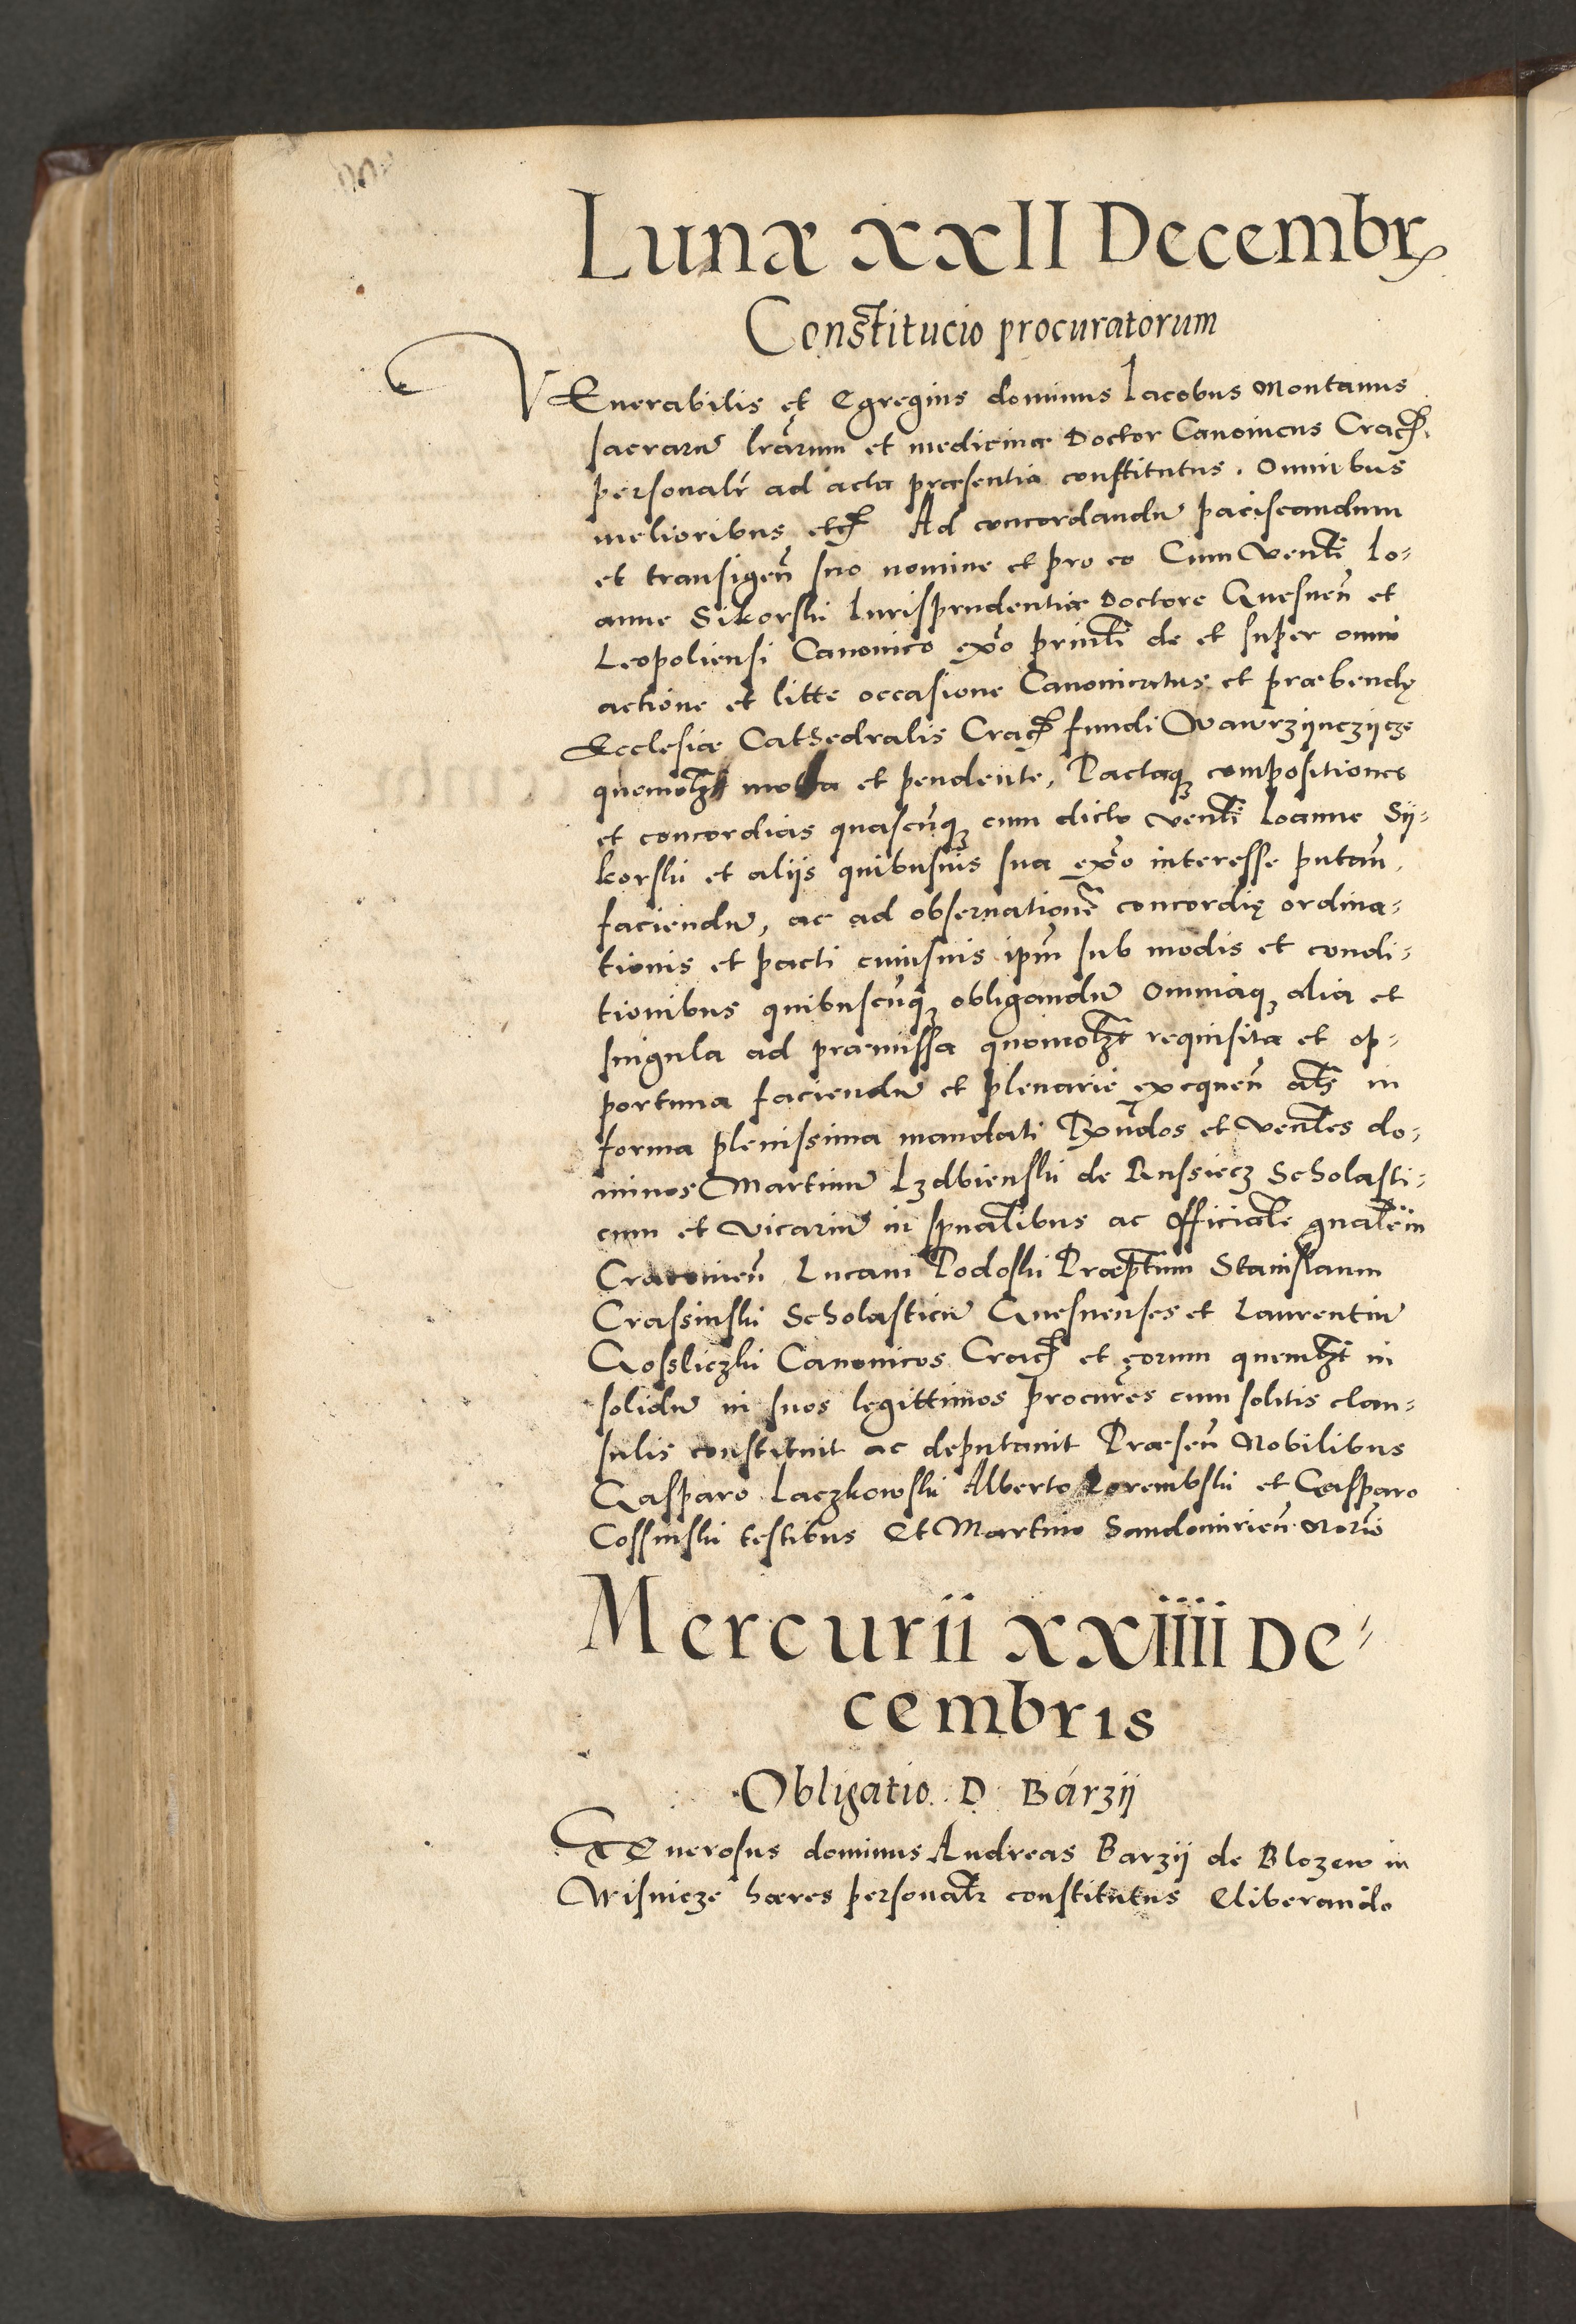 Lunæ xxII Decembr
Constitucio procuratorum
VEnerabilis et Egregius dominus Iacobus Montanus
sacraru͂ lr̃arum et medicinæ Doctor Canonicus Crac̃.
personalr̃ ad acta præsentia constitutus. Omnibus
melioribus etc̃ Ad concordandu͂ paciscandum
et transigen̄ suo nomine et pro eo Cum Venli͂ Io-
anne Sikorski Iurisprudentiæ Doctore Gnesnen̄ et
Leopoliensi Canonico ex̃o prinli͂ de et super omni
actione et litte occasione Canonicatus et præbendę
Ecclesiæ Cathedralis Crac̃ fundi Wawrzÿnczÿcze
quomolz̃t mota et pendente, Pactaq3 compositiones
et concordias quascu͂q3 cum dicto venli͂ Ioanne Sÿ-
korski et alÿs quibusuis sua ex̃o interesse putan̄.
faciendu͂, ac ad obseruatione͂ concordię ordina-
tionis et pacti cuiusuis ip̃m sub modis et condi-
tionibus quibuscu͂q3 obligandu͂ Omniaq3 alia et
singula ad præmissa quomolz̃t requisita et op-
portuna faciendu͂ et plenarie exequen̄ al̃s in
forma plenissima mandati Rx̃ndos et Venl̃es do-
minos Martinu͂ Izdbienski de Russiecz Scholasti-
cum et Vicariu͂ in sp̃ualibus ac Officiale͂ gn̄ale͂m
Cracouien̄ Lucam Podoski Præp̃tum Stanislaum
Crassinski Scholasticu͂ Gnesnenses et Laurentiu͂
Gosliczki Canonicos Crac̃ et eorum quemlz̃t in
solidu͂ in suos legittimos procur̃es cum solitis clau-
sulis constituit ac deputauit Præsen̄ Nobilibus
Gasparo Laczkowski Alberto Porembski et Gasparo
Cossinski testibus Et Martino Sandomirien̄ Nor͂io
Mercurii xxiiii De-
cembris
Obligatio D Bárzÿ
GEnerosus dominus Andreas Barzÿ de Blozew in
Wisnicze hæres personalr̃ constitutus Eliberando